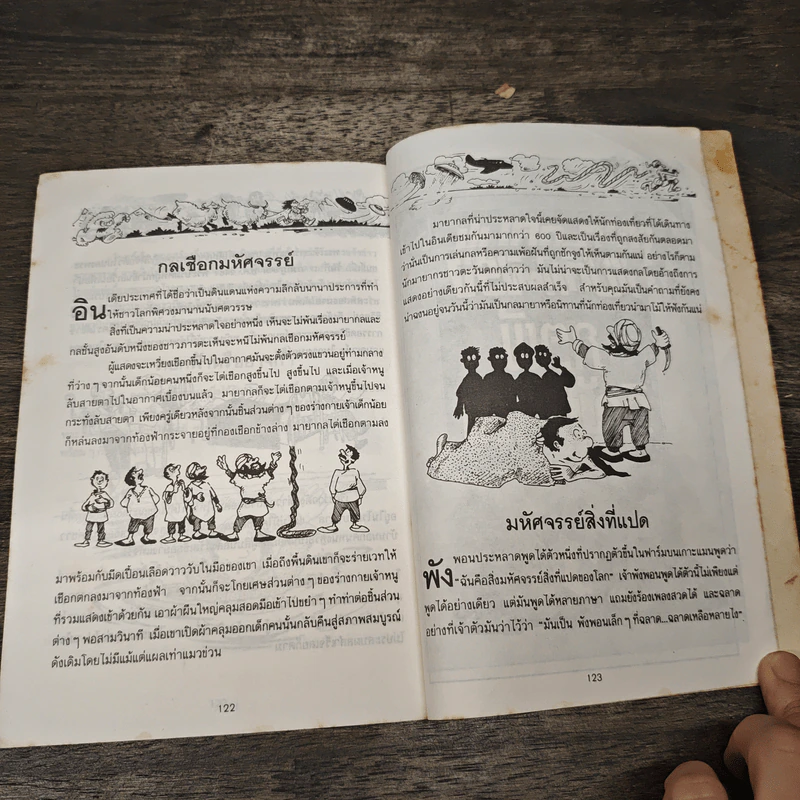 กลเชือกมหัศจรรย์
อินเดียประเทศที่ได้ชื่อว่าเป็นดินแดนแห่งความลึกลับนานาประการที่ทำ
ให้ชาวโลกพิศวงมานานนับศตวรรษ
สิ่งที่เป็นความน่าประหลาดใจอย่างหนึ่ง เห็นจะไม่พ้นเรื่องมายากลและ
กลชั้นสูงอันดับหนึ่งของชาวภารตะเห็นจะหนีไม่พ้นกลเชือกมหัศจรรย์
ผู้แสดงจะเหวี่ยงเชือกขึ้นไปในอากาศมันจะตั้งตัวตรงแขวนอยู่ท่ามกลาง
ที่ว่าง ๆ จากนั้นเด็กน้อยคนหนึ่งก็จะไต่เชือกสูงขึ้นไป สูงขึ้นไป และเมื่อเจ้าหนู
ลับสายตาไปในอากาศเบื้องบนแล้ว มายากลก็จะไต่เชือกตามเจ้าหนูขึ้นไปจน
กระทั่งลับสายตา เพียงครู่เดียวหลังจากนั้นชิ้นส่วนต่าง ๆ ของร่างกายเจ้าเด็กน้อย
ก็หล่นลงมาจากท้องฟ้ากระจายอยู่ที่กองเชือกข้างล่าง มายากลไต่เชือกตามลง
มาพร้อมกับมีดเปื้อนเลือดวาววับในมือของเขา เมื่อถึงพื้นดินเขาก็จะร่ายเวทให้
เชือกตกลงมาจากท้องฟ้า จากนั้นก็จะโกยเศษส่วนต่าง ๆ ของร่างกายเจ้าหนู
ที่รวมแสดงเข้าด้วยกัน เอาผ้าผืนใหญ่คลุมสอดมือเข้าไปขยำ ๆ ทำท่าต่อชิ้นส่วน
ต่าง ๆ พอสามวินาที เมื่อเขาเปิดผ้าคลุมออกเด็กคนนั้นกลับคืนสู่สภาพสมบูรณ์
ดังเดิมโดยไม่มีแม้แต่แผลเท่าแมวข่วน
122
มายากลที่น่าประหลาดใจนี้เคยจัดแสดงให้นักท่องเที่ยวที่ได้เดินทาง
เข้าไปในอินเดียชมกันมามากกว่า 600 ปีและเป็นเรื่องที่ถูกสงสัยกันตลอดมา
ว่านั่นเป็นการเล่นกลหรือความเพ้อฝันที่ถูกชักจูงให้เห็นตามกันแน่ อย่างไรก็ตาม
นักมายาการชาวตะวันตกกล่าวว่า มันไม่น่าจะเป็นการแสดงกลโดยอ้างถึงการ
แสดงอย่างเดียวกันนี้ที่ไม่ประสบผลสำเร็จ สำหรับคุณมันเป็นคำถามที่ยังคง
น่าฉงนอยู่จนวันนี้ว่ามันเป็นกลมายาหรือนิทานที่นักท่องเที่ยวนำมาโม้ให้ฟังกันแน่
มหัศจรรย์สิ่งที่แปด
พังพอนประหลาดพูดได้ตัวหนึ่งที่ปรากฏตัวขึ้นในฟาร์มบนเกาะแมนพูดว่า
"ฉันคือสิ่งมหัศจรรย์สิ่งที่แปดของโลก" เจ้าพังพอนพูดได้ตัวนี้ไม่เพียงแต่
พูดได้อย่างเดียว แต่มันพูดได้หลายภาษา แถมยังร้องเพลงสวดได้ และฉลาด
อย่างที่เจ้าตัวมันว่าไว้ว่า "มันเป็น พังพอนเล็ก ๆ ที่ฉลาด...ฉลาดเหลือหลายไง"
123